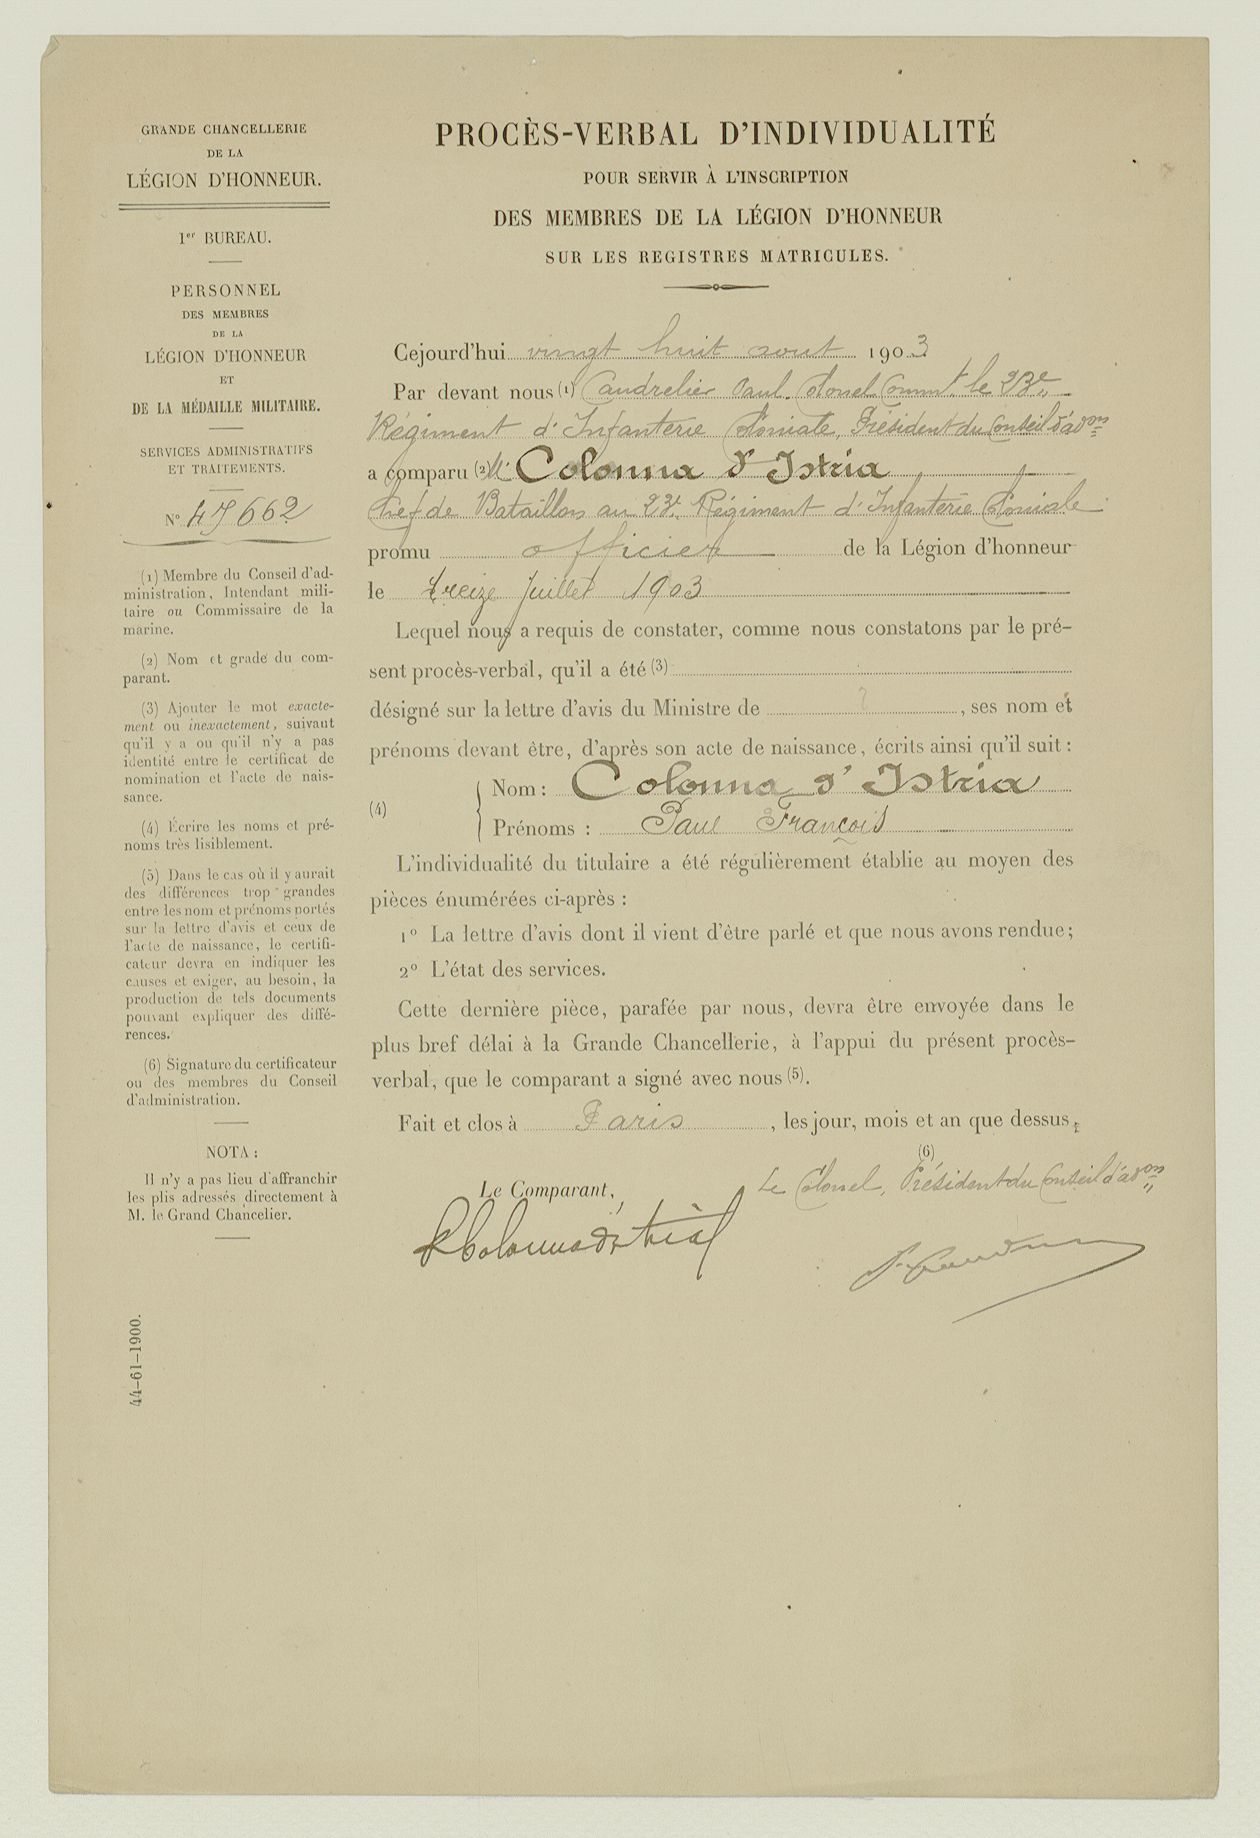 GRANDE CHANCELLERIE
DE LA
LÉGION D'HONNEUR.
1er BUREAU.
PERSONNEL
DES MEMBRES
DE LA
LÉGION D'HONNEUR
ET
DE LA MÉDAILLE MILITAIRE.
SERVICES ADMINISTRATIFS
ET TRAITEMENTS.
N° 47662
(1) Membre du Conseil d'ad-
ministration, Intendant mili-
taire ou Commissaire de la
marine.
(2) Nom et grade du com-
parant.
(3) Ajouter le mot exacte-
ment ou inexactement, suivant
qu'il y a ou qu'il n'y a pas
identité entre le certificat de
nomination et l'acte de nais-
sance.
(4) Écrire les noms et pré-
noms très lisiblement.
(5) Dans le cas où il y aurait
des différences trop grandes
entre les nom et prénoms portés
sur la lettre d'avis et ceux de
l'acte de naissance, le certifi-
cateur devra en indiquer les
causes et exiger, au besoin, la
production de tels documents
pouvant expliquer des diffé-
rences.
(6) Signature du certificateur
ou des membres du Conseil
d'administration.
NOTA :
Il n'y a pas lieu d'affranchir
les plis adressés directement à
M. le Grand Chancelier.
44-61-1900.
PROCÈS-VERBAL D'INDIVIDUALITÉ
POUR SERVIR À L'INSCRIPTION
DES MEMBRES DE LA LÉGION D'HONNEUR
SUR LES REGISTRES MATRICULES.
Cejourd'hui vingt huit aout 1903
Par devant nous (1) Caudrelier Paul. Colonel Commt le 23e
Régiment d'Infanterie Coloniale, Président du Conseil d'adon
a comparu (2) Mr Colonna d'Istria
Chef de Bataillon au 23e Régiment d'Infanterie Coloniale
promu officier de la Légion d'honneur
le treize Juillet 1903
Lequel nous a requis de constater, comme nous constatons par le pré-
sent procès-verbal, qu'il a été (3)
désigné sur la lettre d'avis du Ministre de , ses nom et
prénoms devant être, d'après son acte de naissance, écrits ainsi qu'il suit :
(4) Nom : Colonna d'Istria
Prénoms : Paul François
L'individualité du titulaire a été régulièrement établie au moyen des
pièces énumérées ci-après :
1° La lettre d'avis dont il vient d'être parlé et que nous avons rendue;
2° L'état des services.
Cette dernière pièce, parafée par nous, devra être envoyée dans le
plus bref délai à la Grande Chancellerie, à l'appui du présent procès-
verbal, que le comparant a signé avec nous (5).
Fait et clos à Paris , les jour, mois et an que dessus,
(6)
Le Comparant,
Le Colonel, Président du Conseil d'adon
PColonnad'Istria